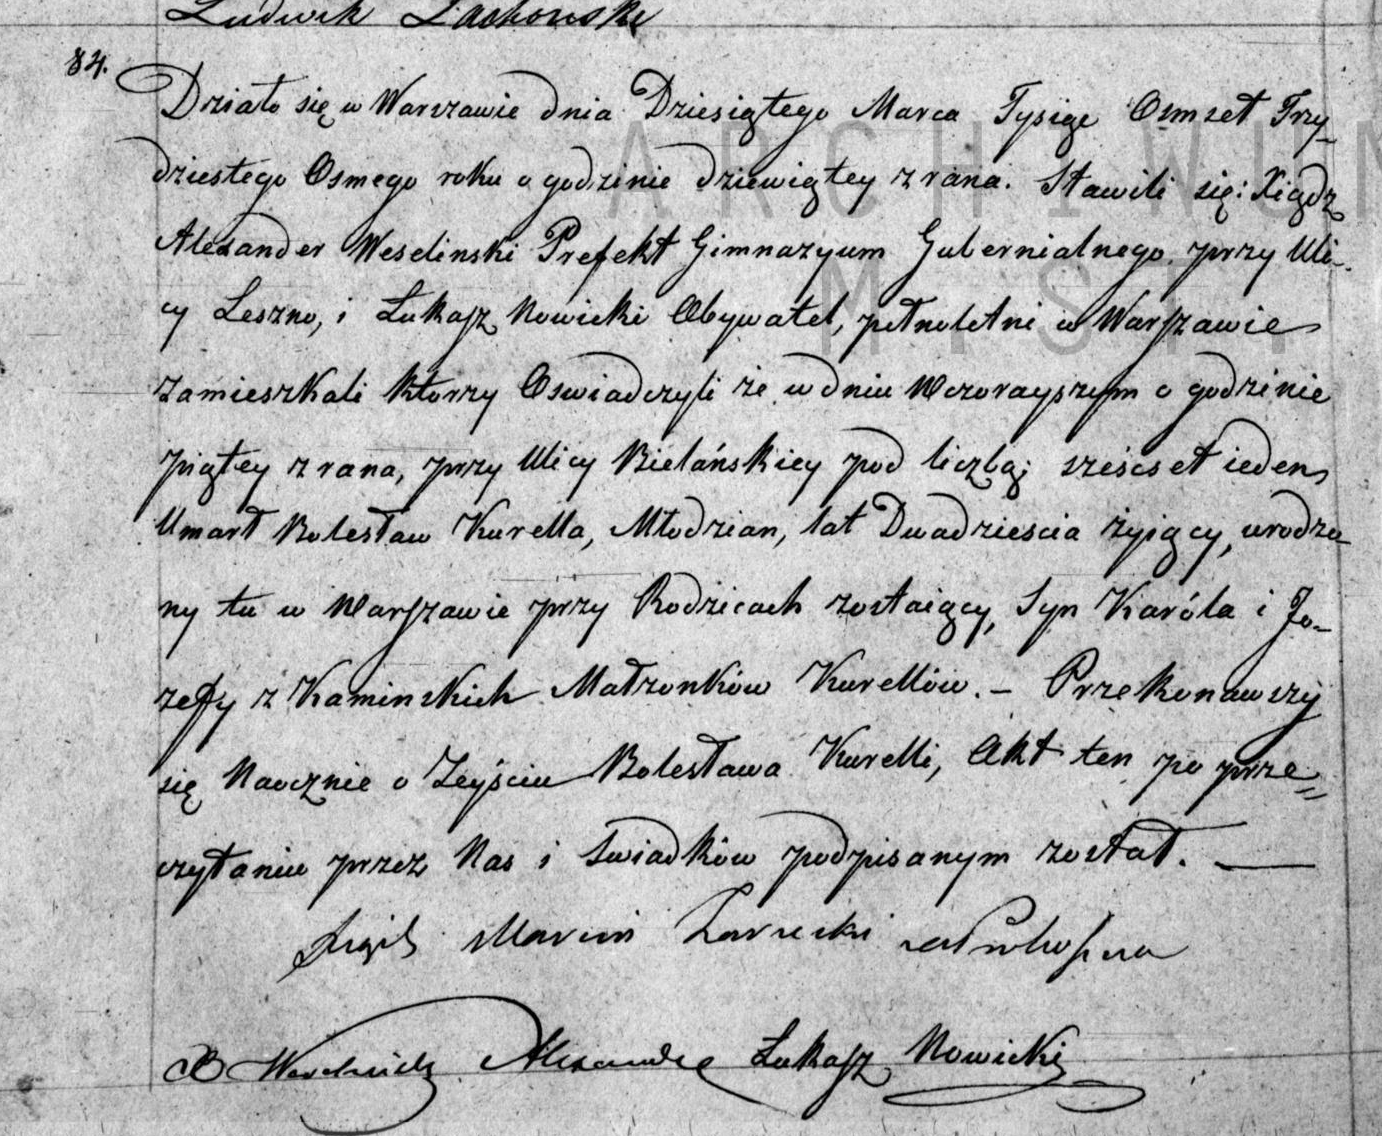 Ludwik
84.
Działo się w Warszawie dnia Dziesiątego Marca Tysiąc Osmset Trzy-
dziestego Osmego roku o godzinie dziewiątey z rana. Stawili się: Xiądz
Alexander Weselinski Prefekt Gimnazyum Gubernialnego przy Uli-
cy Leszno, i Łukasz Nowicki Obywatel, pełnoletni w Warszawie
zamieszkali ktorzy Oswiadczyli że w dniu Wczorayszym o godzinie
piątey z rana, przy Ulicy Bielańskiey pod liczbą; sześcset ieden
Umarł Bolesław Kurella, Młodzian, lat Dwadziescia żyiący, urodzo
ny tu w Warszawie przy Rodzicach zostaiący, Syn Karóla i Jo-
zefy z Kaminskich Małżonków Kurellów. – Przekonawszy
się Naocznie o Zeyściu Bolesława Kurelli, Akt ten po prze=
czytaniu przez Nas i Swiadków podpisanym został. —
Marcin
Alexander Łukasz Nowicki
ARCHIWUM
M ST